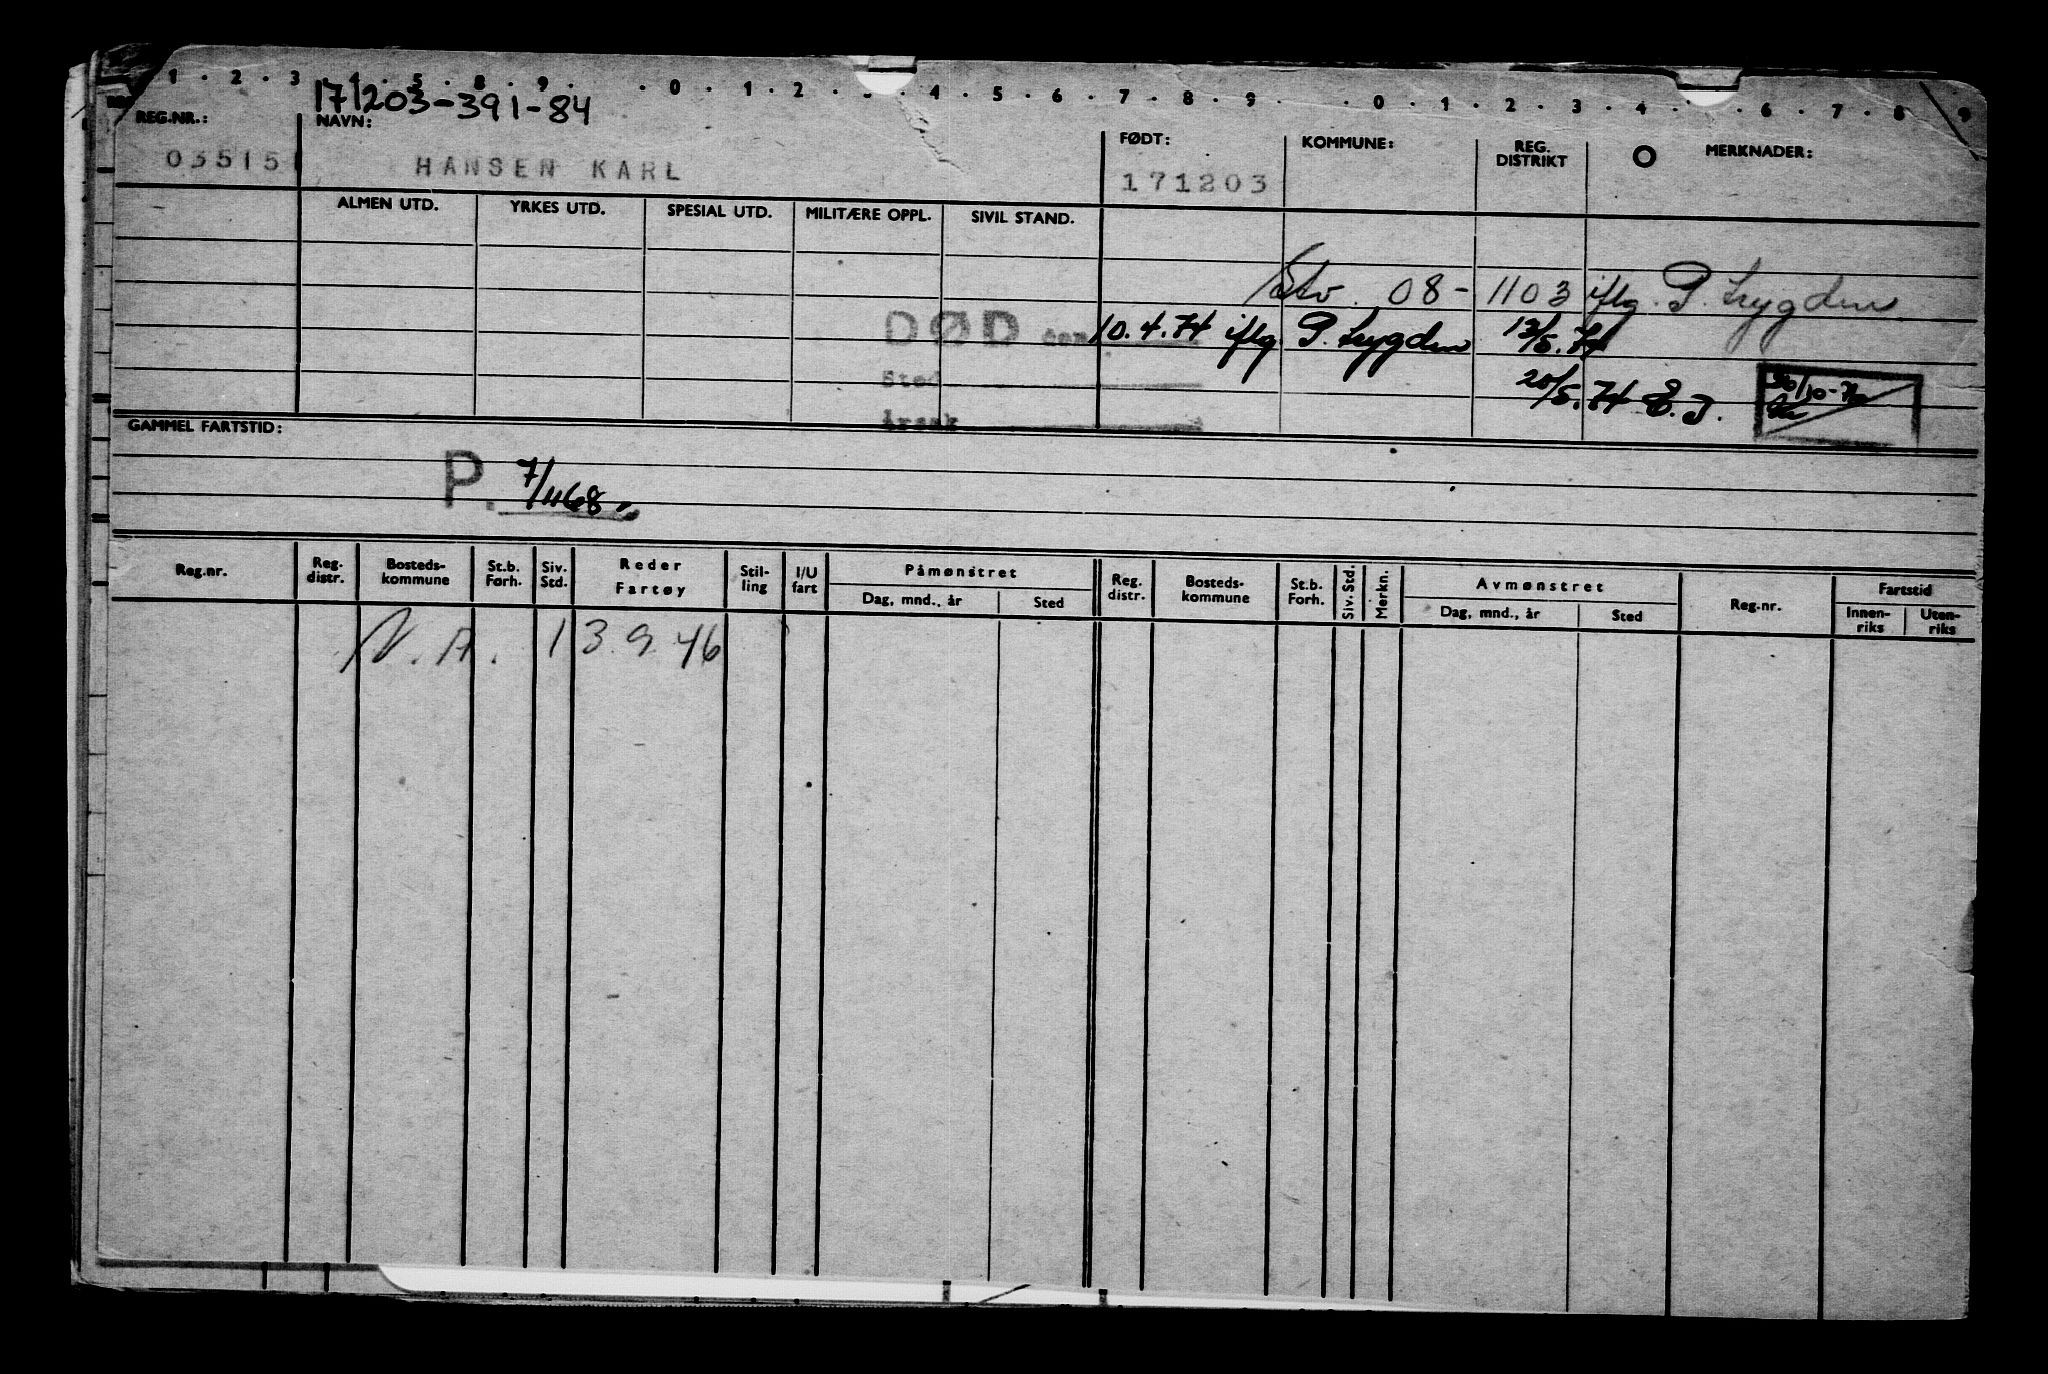 1 . 2 . 3 . 4 . 5 . 8 . 9 . . 0 . 1 . 2 . 3 . 4 . 5 . 6 . 7 . 8 . 9 . . 0 . 1 . 2 . 3 . 4 . . 6 . 7 . 8 . 9
171203-391-84
REG.NR.: NAVN: FØDT: KOMMUNE: REG. DISTRIKT O MERKNADER:
035151 HANSEN KARL 171203
ALMEN UTD. YRKES UTD. SPESIAL UTD. MILITÆRE OPPL. SIVIL STAND.
Stv. 08- 1103 iflg. P. Trygden
DØD den 10.4.74 iflg. P. Trygden 13/5.74
Sted 20/5.74 E.J. 30/10-
Årsak
GAMMEL FARTSTID:
P. 7/1168
Reg.nr. Reg. distr. Bosteds- kommune St.b. Forh. Siv. Std. Reder Fartøy Stil- ling I/U fart Påmønstret Dag, mnd., år Sted Reg. distr. Bosteds- kommune St.b. Forh. Siv. Std. Merkn. Avmønstret Dag, mnd., år Sted Reg.nr. Fartstid Innen- riks Uten- riks
N.A. 13 9 46